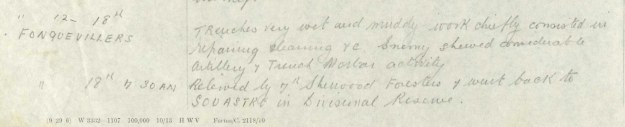 " 12 - 18th Trenches very wet and muddy work chiefly consisted in
FONQUEVILLERS repairing cleaning &c. Enemy shewed considerable
artillery & Trench Mortar activity
" 18th 7 30 AM Relieved by 7th Sherwood Foresters & went back to
SOUASTRE in Divisional Reserve.
(9 29 6) W 3332—1107 100,000 10/13 H W V Forms/C. 2118/10